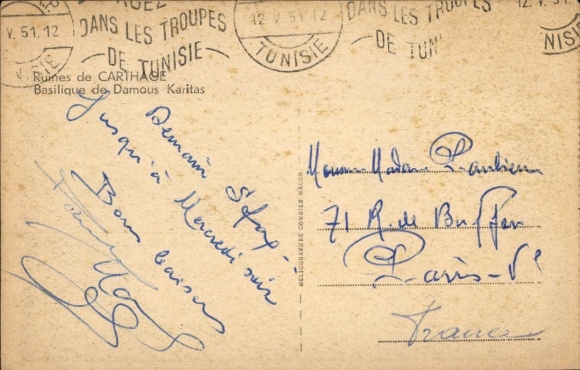 DANS LES TROUPES
DE TUNISIE
12 V. 51. 12
TUNISIE
DANS LES TROUPES
DE TUN
V. 51. 12
12 V.
NISIE
Ruines de CARTHAGE
Basilique de Damous Karitas
Demain Sfax
Jusqu'à Mercredi soir
Bons baisers
HELIOGRAVURE COMBIER MACON
71 R. de Buffon
Paris-Ve
France